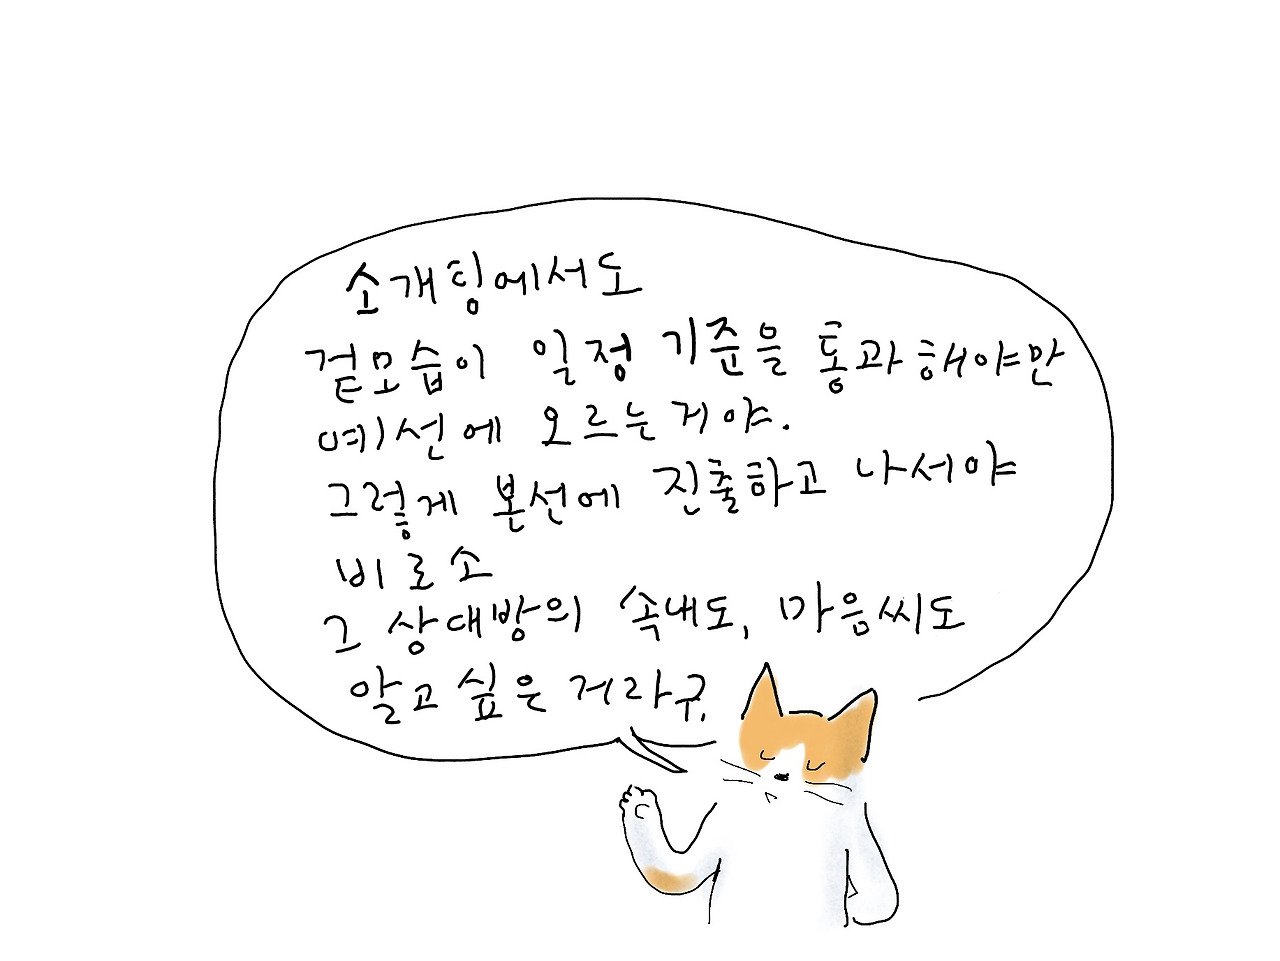 소개팅에서도
겉모습이 일정 기준을 통과해야만
예선에 오르는거야.
그렇게 본선에 진출하고 나서야
비로소
그 상대방의 속내도, 마음씨도
알고 싶은 거라구.